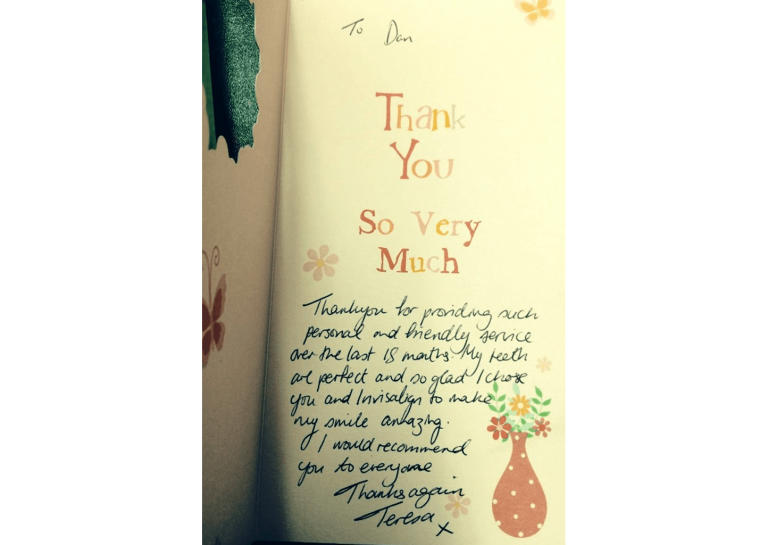 To Dan
Thank
You
So Very
Much
Thankyou for providing such
personal and friendly service
over the last 18 months. My teeth
are perfect and so glad I chose
you and Invisalign to make
my smile amazing.
I would recommend
you to everyone
Thanks again
Teresa x